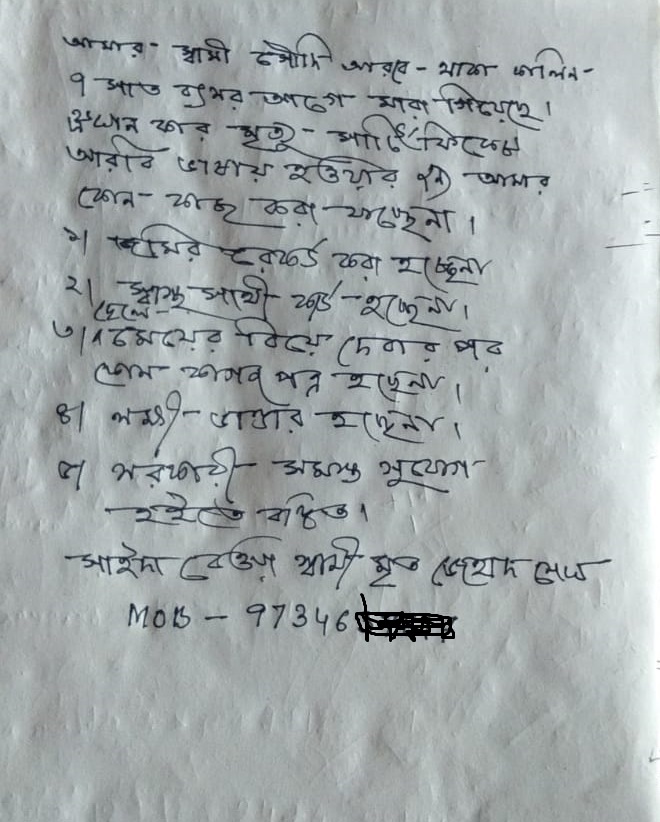 আমার- স্বামী সৌদি আরবে- থাকা কালিন-
৭ সাত বৎসর আগে মারা গিয়েছে।
তার মৃত্যু- সার্টিফিকেট
আরবি ভাষায় হওয়ার জন্য আমার
কোন- কাজ করা যাচ্ছেনা।
১। জমির রেকর্ড করা হচ্ছেনা
২। স্বাস্থ্য সাথী কার্ড- হচ্ছেনা।
ছেলে-
৩। মেয়ের বিয়ে দেবার পর
কোন- কাগজ পত্র হচ্ছেনা।
৪। লক্ষ্মী- ভান্ডার হচ্ছেনা।
৫। সরকারী- সমস্ত সুযোগ
হইতে বঞ্চিত।
সাইদা বেওয়া স্বামী মৃত জেহাদ সেখ
MOB - 97346